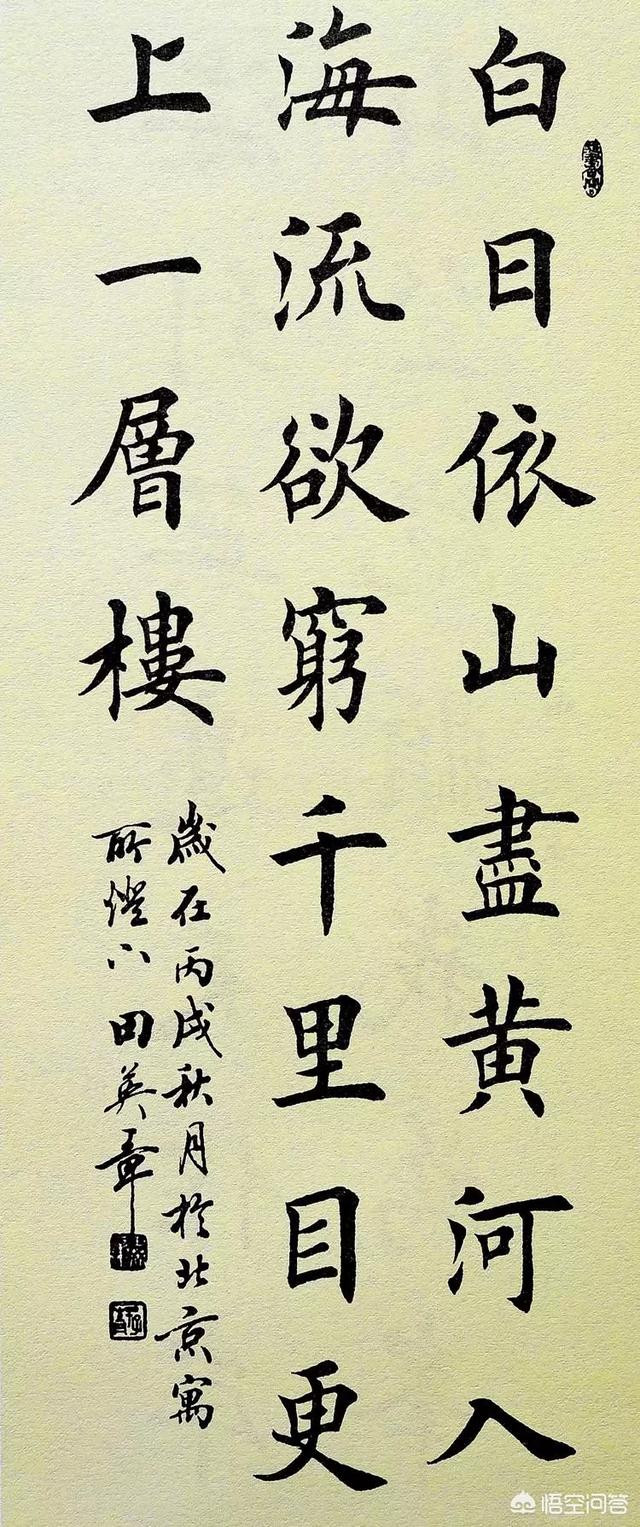 白日依山盡黄河入
海流欲窮千里目更
上一層樓
歲在丙戌秋月於北京寓
所燈下田英章
悟空问答